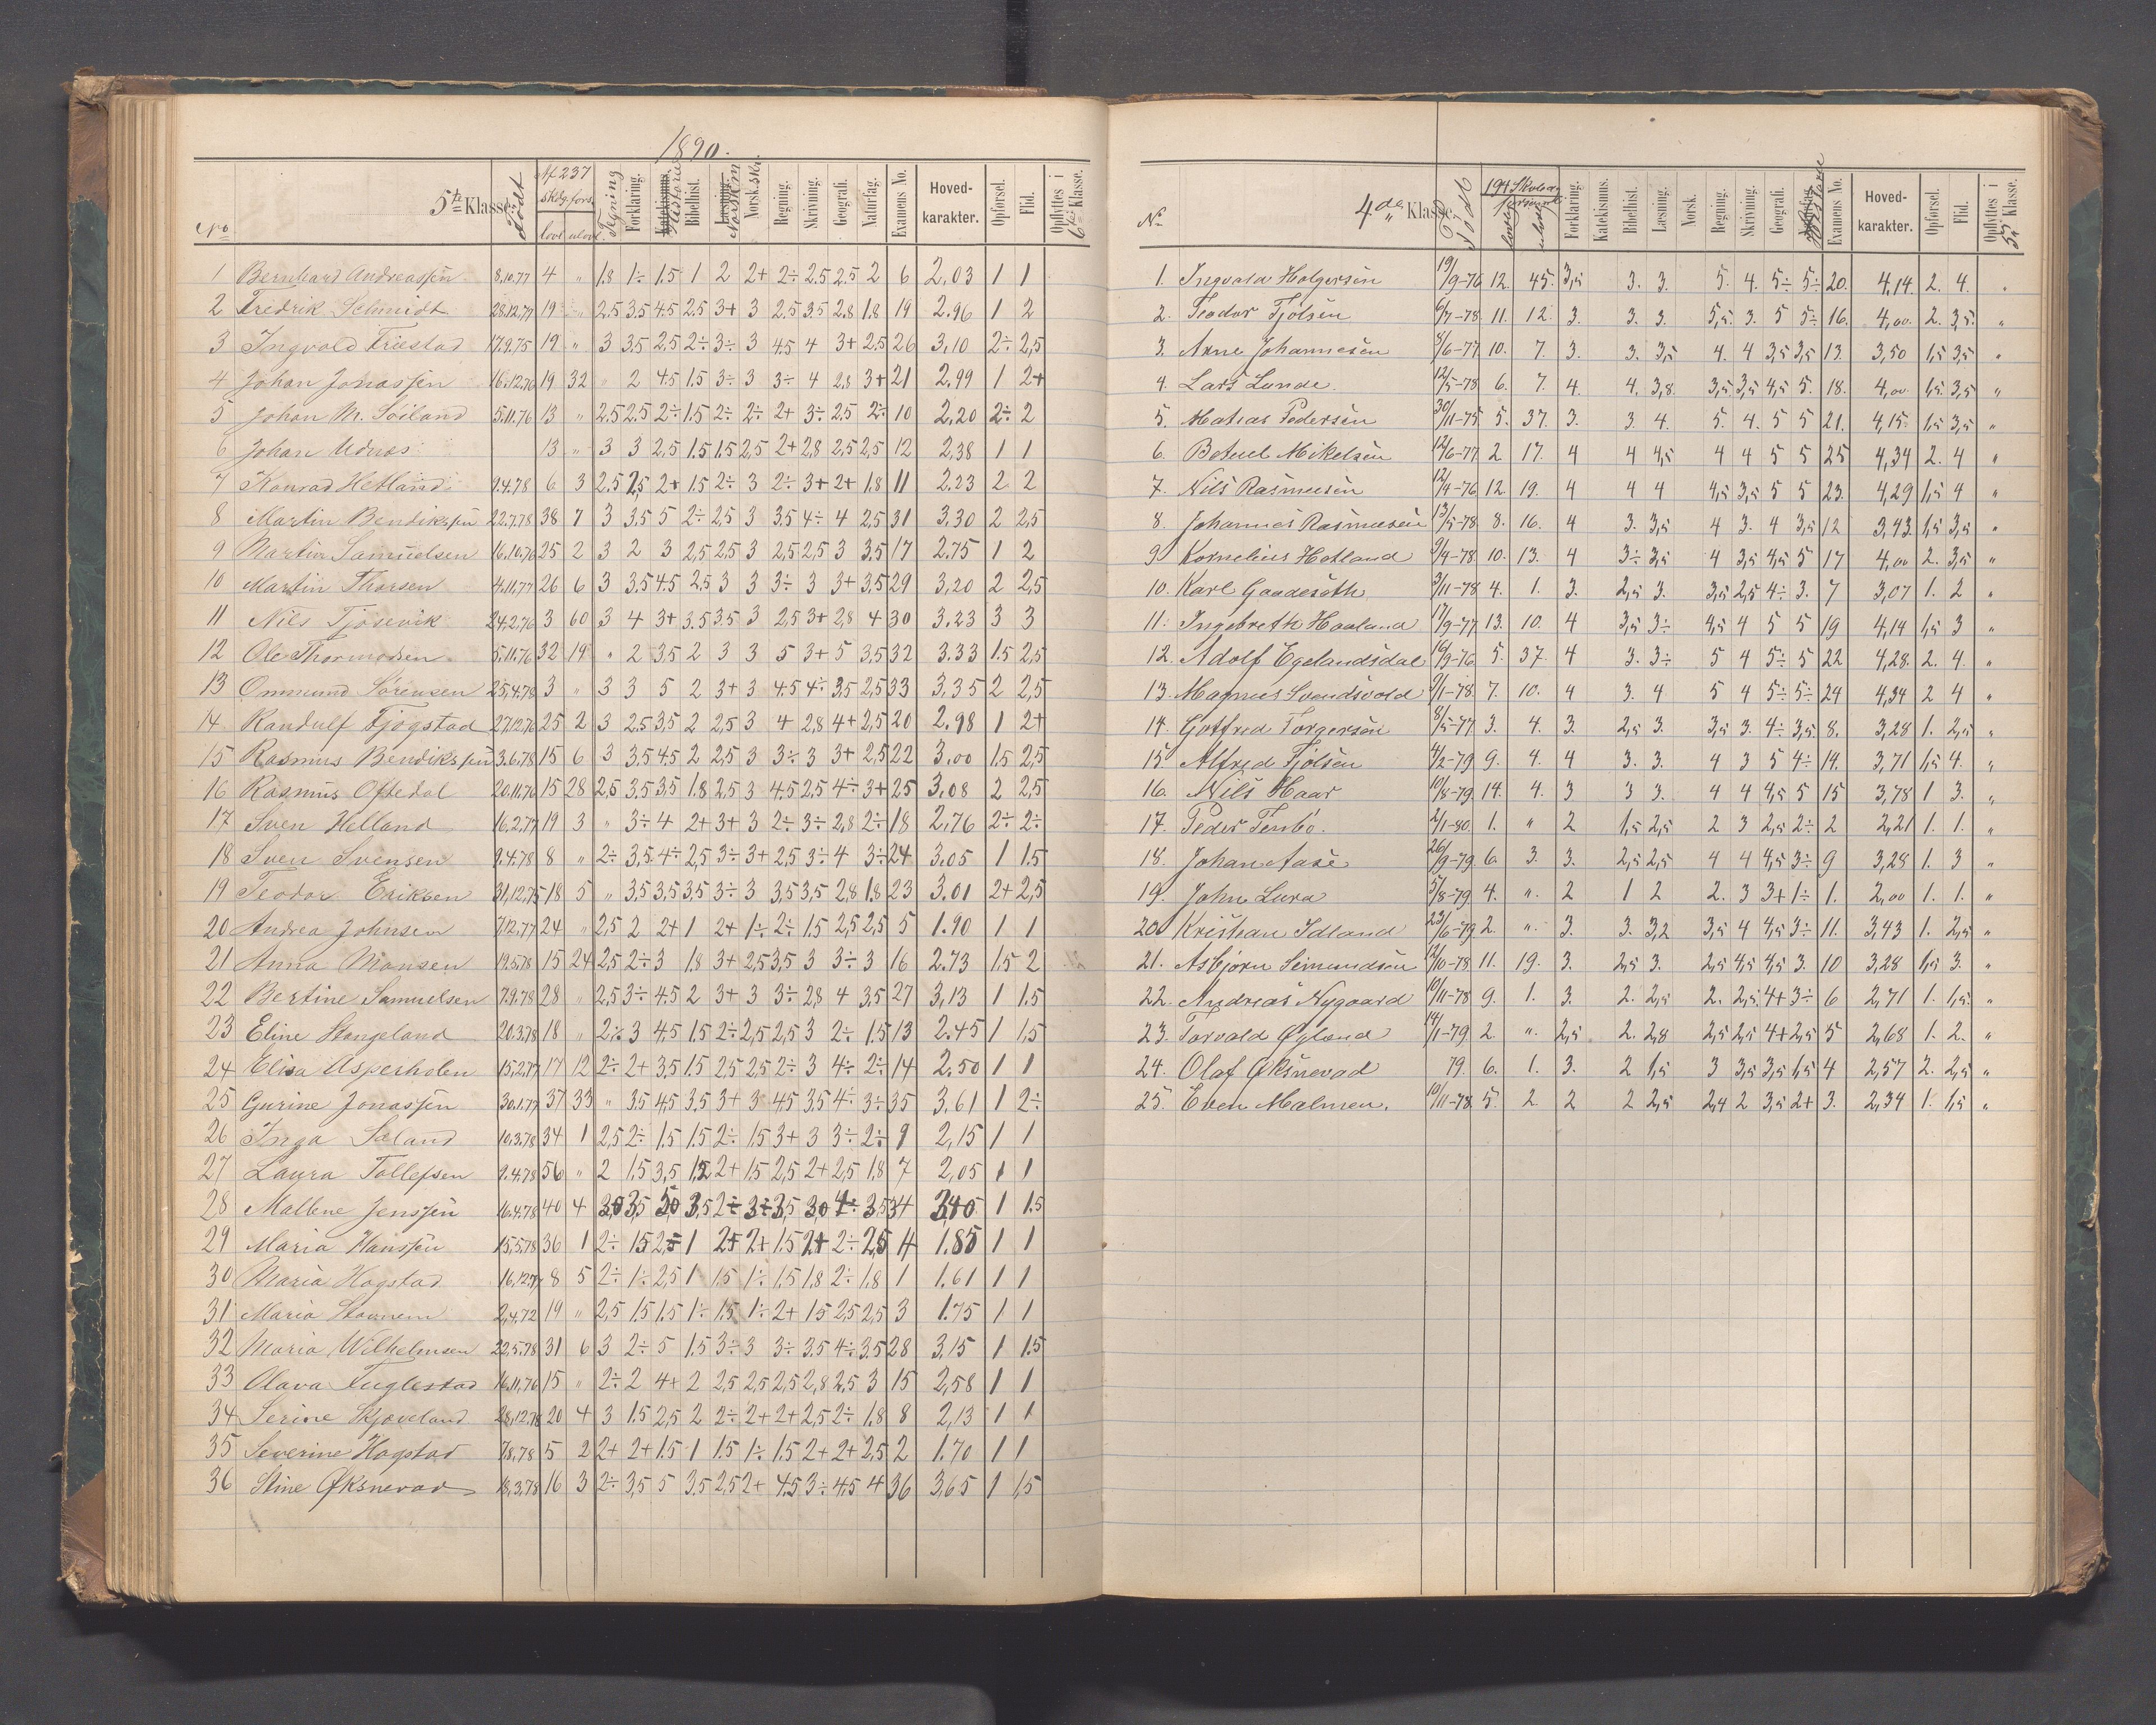 1890.
No 5te Klasse. Født N 237 Skdg. fors. lovl. ulovl. Tegning Forklaring. Historie Bibelhist. Norsk m Norsk skr. Regning. Skrivning. Geografi. Naturfag. Examens No. Hoved-karakter. Opførsel. Flid. Opflyttes i 6te Klasse.
1 Bernhard Andreassen 8.10.77 4 " 1.8 1÷ 1.5 1 2 2+ 2÷ 2.5 2.5 2 6 2.03 1 1
2 Fredrik Schmidt 28.12.79 19 " 2.5 3.5 4.5 2.5 3+ 3 2.5 3.5 2.8 1.8 19 2.96 1 2
3 Ingvald Friestad 17.9.75 19 " 3 3.5 2.5 2÷ 3÷ 3 4.5 4 3+ 2.5 26 3,10 2÷ 2,5
4 Johan Jonassen 16.12.76 19 32 " 2 4.5 1.5 3÷ 3 3÷ 4 2,8 3+ 21 2.99 1 2+
5 Johan M. Soiland 5.11.76 13 " 2.5 2.5 2÷ 1.5 2÷ 2÷ 2+ 3÷ 2.5 2÷ 10 2.20 2÷ 2
6 Johan Udnæs 13 " 3 3 2,5 1.5 1.5 2,5 2+ 2,8 2,5 2,5 12 2,38 1 1
7 Konrad Hetland 9.4.78 6 3 2.5 2,5 2+ 1.5 2÷ 3 2÷ 3+ 2+ 1.8 11 2.23 2 2
8 Martin Bendiksen 22.7.78 38 7 3 3.5 5 2÷ 2,5 3 3.5 4÷ 4 2,5 31 3.30 2 2,5
9 Martin Samuelsen 16.10.76 25 2 3 2 3 2,5 2,5 3 2,5 2,5 3 3.5 17 2.75 1 2
10 Martin Thorsen 4.11.77 26 6 3 3.5 4.5 2.5 3 3 3÷ 3 3+ 3.5 29 3,20 2 2,5
11 Nils Tjøsevik 24.2.76 3 60 3 4 3+ 3.5 3.5 3 2,5 3+ 2,8 4 30 3.23 3 3
12 Ole Thormodsen 5.11.76 32 19 " 2 3.5 2 3 3 5 3+ 5 3,5 32 3.33 1.5 2,5
13 Ommund Sørensen 25,4.78 3 " 3 3 5 2 3+ 3 4.5 4÷ 3,5 2,5 33 3,35 2 2,5
14 Randulf Fjøgstad 27,12,76 25 2 3 2.5 3.5 2 2,5 3 4 2,8 4+ 2,5 20 2.98 1 2+
15 Rasmus Bendiksen 3.6.78 15 6 3 3.5 4.5 2 2,5 3 3÷ 3 3+ 2,5 22 3.00 1.5 2,5
16 Rasmus Oftedal 20.11.76 15 28 2,5 3.5 3.5 1.8 2,5 3 4.5 2.5 4÷ 3+ 25 3,08 2 2,5
17 Sven Helland 16.2.77 19 3 " 3÷ 4 2+ 3+ 3 2÷ 3÷ 2,8 2÷ 18 2,76 2÷ 2÷
18 Sven Svensen 9.4.78 8 " 2÷ 3,5 4÷ 2,5 3÷ 3+ 2,5 3÷ 4 3÷ 24 3.05 1 1.5
19 Teodor Eriksen 31,12,75 18 5 " 3.5 3,5 3,5 3÷ 3 3,5 3,5 2,8 1.8 23 3.01 2+ 2,5
20 Andrea Johnsen 7.12.77 24 " 2,5 2 2+ 1 2+ 1÷ 2÷ 1.5 2,5 2,5 5 1.90 1 1
21 Anna Monsen 19.5.78 15 24 2,5 2÷ 3 1.8 3+ 2,5 3,5 3 3÷ 3 16 2.73 1.5 2
22 Bertine Samuelsen 7.9.78 28 " 2,5 3÷ 4.5 2 3+ 3 3÷ 2,8 4 3.5 27 3,13 1 1.5
23 Eline Stangeland 20.3.78 18 " 2÷ 3 4.5 1.5 2÷ 2,5 2,5 3 2÷ 1.5 13 2.45 1 1,5
24 Elisa Asperholen 15.2.77 17 12 2÷ 2+ 3,5 1.5 2,5 2,5 2÷ 3 4÷ 2÷ 14 2.50 1 1
25 Gurine Jonassen 30.1.77 37 33 " 3,5 4,5 3,5 3+ 3 4.5 3.5 4÷ 3÷ 35 3.61 1 2÷
26 Inga Soland 10.3.78 34 1 2,5 2÷ 1.5 1.5 2÷ 1.5 3+ 3 3÷ 2÷ 9 2,15 1 1
27 Laura Tollefsen 9.4.78 56 " 2 1.5 3,5 1,2 2+ 1,5 2,5 2+ 2,5 1,8 7 2,05 1 1
28 Mallene Jenssen 16.4.78 40 4 3,0 3,5 5,0 3,5 2÷ 3÷ 3,5 3,0 4÷ 3,5 34 3,40 1 1.5
29 Maria Hanssen 15.5.78 36 1 2÷ 1.5 2,5 1 2+ 2+ 1.5 2+ 2÷ 2,5 4 1.85 1 1
30 Maria Hogstad 16,12,77 8 5 2÷ 1÷ 2,5 1 1.5 1÷ 1.5 1.8 2÷ 1.8 1 1.61 1 1
31 Maria Stavnem 2,4.72 19 " 2,5 1.5 1.5 1÷ 1.5 1÷ 2+ 1.5 2,5 2,5 3 1.75 1 1
32 Maria Wilhelmsen 22,5.78 31 6 3 2÷ 5 1.5 3÷ 3 3÷ 3.5 4÷ 3.5 28 3,15 1 1.5
33 Olava Fuglestad 16.11.76 15 " 2÷ 2 4+ 2 2,5 2,5 2,5 2,8 2,5 3 15 2,58 1 1
34 Serine Skjæveland 28,12,78 20 4 3 1.5 2,5 2 2÷ 2+ 2+ 2,5 2÷ 1.8 8 2,13 1 1
35 Severine Hogstad 7.8.78 5 2 2+ 2+ 1.5 1 1.5 1÷ 1.5 2+ 2+ 2,5 2 1.70 1 1
36 Stine Øksnevad 18.3.78 16 3 2÷ 3,5 5 3,5 2,5 2+ 4.5 3÷ 4,5 4 36 3,65 1 1,5
No 4de Klasse. Født 194 Skoledg forsømt lovl. ulovl. Forklaring. Katekismus. Bibelhist. Læsning. Norsk. Regning. Skrivning. Geografi. Historie Examens No. Hoved-karakter. Opførsel. Flid. Opflyttes i 5te Klasse.
1. Ingvald Holgersen 19/9-76 12. 45. 3,5 3. 3. 5. 4. 5÷ 5÷ 20. 4,14. 2. 4. "
2. Teodor Tjølsen 6/7-78 11. 12. 3. 3. 3. 5,5. 3. 5 5÷ 16. 4,00. 2. 3,5. "
3. Arne Johannesen 8/6-77 10. 7. 3. 3. 3,5 4. 4 3,5 3,5 13. 3,50 1,5 3,5 "
4. Lars Lunde. 12/5-78 6. 7. 4 4. 3,8. 3,5 3,5 4,5 5. 18. 4,00. 1,5 3,5 "
5. Matias Pedersen 30/11-75 5. 37. 3. 3. 4. 5. 4. 5 5 21. 4,15. 1,5 3,5 "
6. Betuel Mikelsen 12/6-77 2. 17. 4 4 4,5 4 4 5 5 25 4,34 2. 4 "
7. Nils Rasmusen 12/4-76 12. 19. 4 4 4 4,5 3,5 5 5 23. 4,29 1,5 4 "
8. Johannes Rasmusen 13/5-78 8. 16. 4 3. 3,5 4 3. 4 3,5 12 3,43. 1,5 3,5 "
9 Kornelius Hetland 9/4-78 10. 13. 4 3÷ 3,5 4 3,5 4,5 5 17 4,00 2. 3,5 "
10. Karl Gaadesøth 3/11-78 4. 1. 3. 2,5 3. 3,5 2,5 4÷ 3. 7 3,07 1. 2 "
11. Ingebreth Haaland 17/9-77 13. 10. 4 3,5 3÷ 4,5 4 5 5 19 4,14 1,5 3 "
12. Adolf Egelandsdal 16/9-76 5. 37. 4 3. 3÷ 5 4 5÷ 5 22 4,28. 2. 4. "
13. Magnus Svendsvold 9/1-78. 7. 10. 4 3. 4 5 4 5÷ 5÷ 24 4,34 2 4 "
14. Gotfred Torgersen 8/5-77 3. 4. 3. 2,5 3. 3,5 3. 4÷ 3,5. 8. 3,28 1. 2,5 "
15. Alfred Tjølsen 4/2-79 9. 4. 4 3. 3. 4 3 5 4÷ 14. 3,71 1,5 4. "
16. Nils Haar 10/8-79. 14. 4. 3 3 3. 4 4 4,5 5 15 3,78 1 3. "
17. Peder Tenbø. 2/1-80. 1. " 2 1,5 2,5 2 3 2,5 2÷ 2 2,21 1. 1. "
18. Johan Aase 26/9-79 6. 3. 3. 2,5 2,5 4 4 4,5 3÷ 9 3,28 1. 3 "
19. John Lura 5/8-79 4. " 2 1 2 2. 3 3+ 1÷ 1. 2,00 1. 1. "
20. Kristian Idland 23/6-79 2. " 3. 3. 3,2 3,5 4 4,5 3÷ 11. 3,43 1. 2,5 "
21. Asbjørn Simundsen 12/10-78 11. 19. 3. 2,5 3. 2,5 4,5 4,5 3. 10 3,28 1,5 3. "
22. Andreas Nygaard 10/11-78 9. 1. 3. 2. 2,5 2. 2,5 4+ 3÷ 6 2,71 1. 1,5. "
23. Torvald Øgland 14/1-79. 2. " 2,5 2. 2,8 2,5 2,5 4+ 2,5 5 2,68 1. 2. "
24. Olaf Øksnevad 79. 6. 1. 3. 2 1,5 3 3,5 3,5 1,5 4 2,57 2. 2,5 "
25. Even Malmen. 10/11-78 5. 2. 2 2 2,5 2,4 2 3,5 2+ 3. 2,34 1. 1,5 "